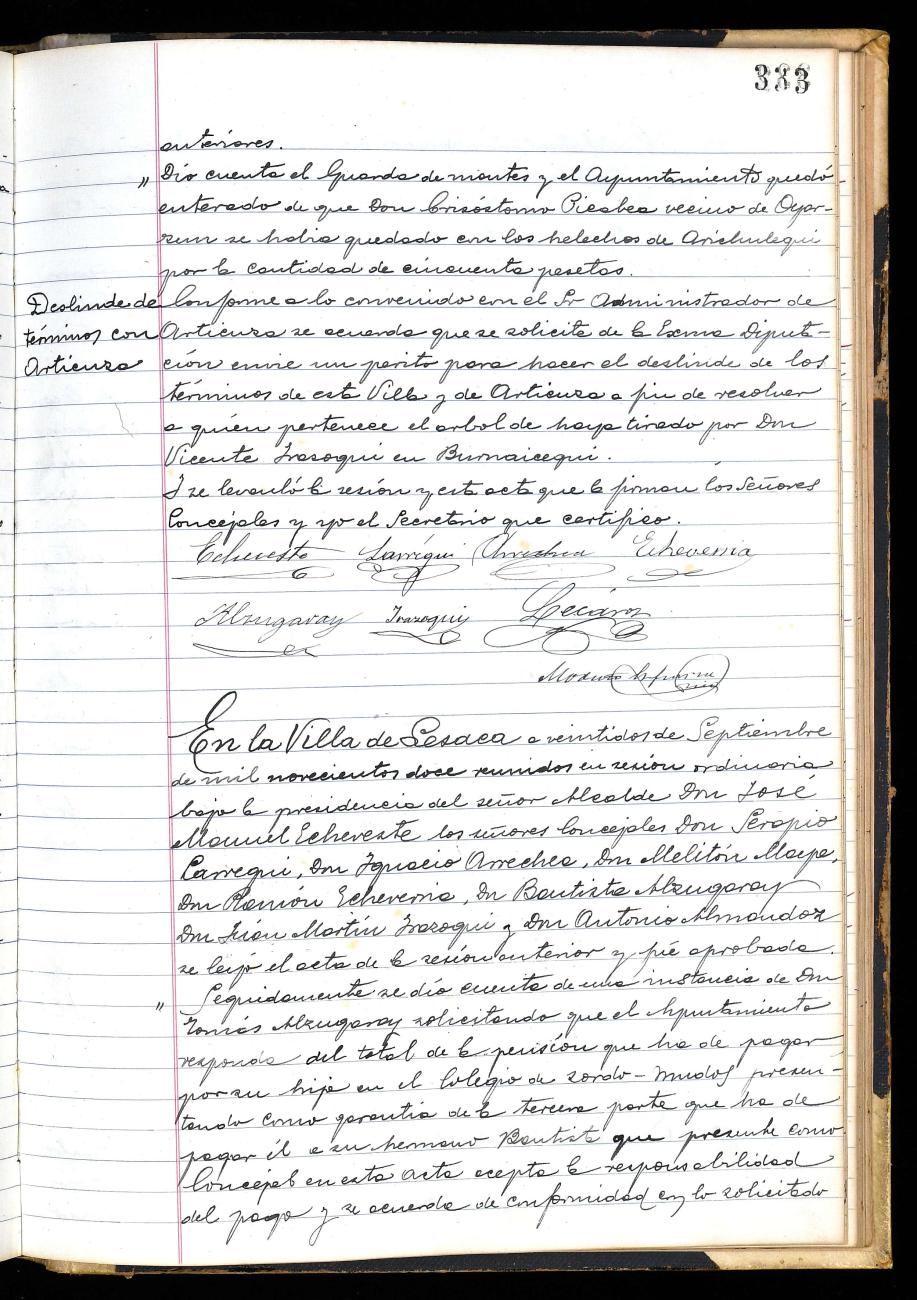 333
anteriores.
" Dío cuenta el Guarda de montes y el Ayuntamiento quedó
enterado de que Don Crisóstomo Picabea vecino de Oyar-
zun se habia quedado con los helechos de Arichulegui
por la cantidad de cincuenta pesetas.
Deslinde de
términos con
Articuza
Conforme a lo convenido con el Sr Administrador de
Articuza se acuerda que se solicite de la Exma Diputa-
ción envie un perito para hacer el deslinde de los
términos de esta Villa y de Articuza a fin de resolver
a quién pertenece el arbol de haya tirado por Don
Vicente Irazoqui en Burnaicegui.
Y se levantó la sesión y esta acta que la firman los Señores
Concejales y yo el Secretario que certifico.
Echeveste Larregui Arrechea Echeverria
Alzugaray Irazoqui Lecároz
En la Villa de Lesaca a veintidos de Septiembre
de mil novecientos doce reunidos en sesión ordinaria
bajo la presidencia del señor Alcalde Don José
Manuel Echeveste los señores Concejales Don Serapio
Larregui, Don Ignacio Arrechea, Don Melitón Maya,
Don Ramón Echeverria, Dn Bautista Alzugaray
Don Juán Martín Irazoqui y Don Antonio Almandoz
se leyó el acta de la sesión anterior y fué aprobada.
" Seguidamente se dío cuenta de una instancia de Don
Tomás Alzugaray solicitando que el Ayuntamiento
responda del total de la pensíon que ha de pagar
por su hija en el Colegio de sordo-mudos presen-
tando como garantia de la tercera parte que ha de
pagar él a su hermano Bautista que presente como
Concejal en esta acta acepta la responsabilidad
del pago y se acuerda de conformidad con lo solicitado